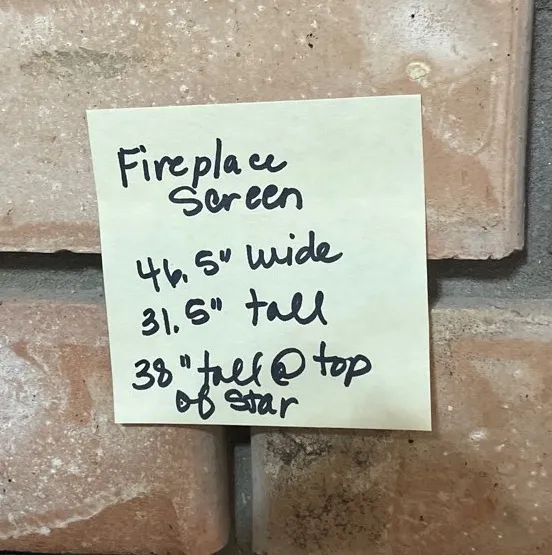 Fireplace
Screen
46.5" wide
31.5" tall
38" tall @ top
of star